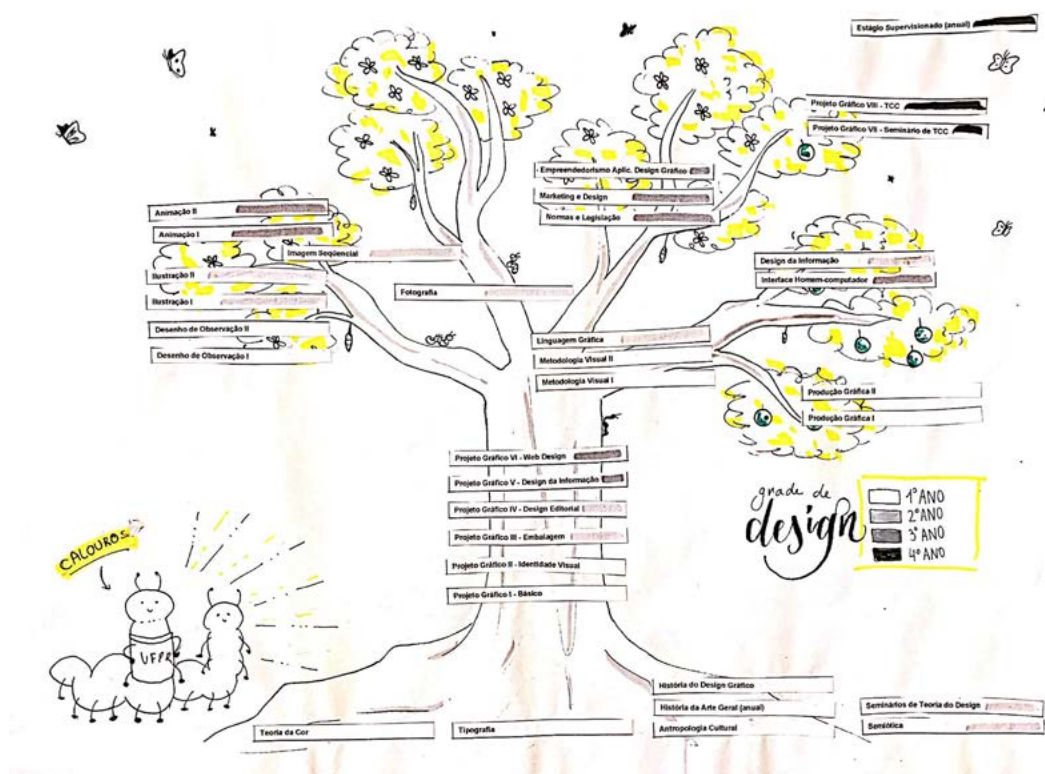 Estágio Supervisionado (anual)
Projeto Gráfico VIII - TCC
Projeto Gráfico VII - Seminário de TCC
Empreendedorismo Aplic. Design Gráfico
Marketing e Design
Normas e Legislação
Animação II
Animação I
Imagem Seqüencial
Ilustração II
Ilustração I
Desenho de Observação II
Desenho de Observação I
Fotografia
Design da Informação
Interface Homem-computador
Linguagem Gráfica
Metodologia Visual II
Metodologia Visual I
Produção Gráfica II
Produção Gráfica I
Projeto Gráfico VI - Web Design
Projeto Gráfico V - Design da Informação
Projeto Gráfico IV - Design Editorial
Projeto Gráfico III - Embalagem
Projeto Gráfico II - Identidade Visual
Projeto Gráfico I - Básico
grade de
design
1º ANO
2º ANO
3º ANO
4º ANO
CALOUROS
UFPR
História do Design Gráfico
História da Arte Geral (anual)
Antropologia Cultural
Seminários de Teoria do Design
Semiótica
Teoria da Cor
Tipografia